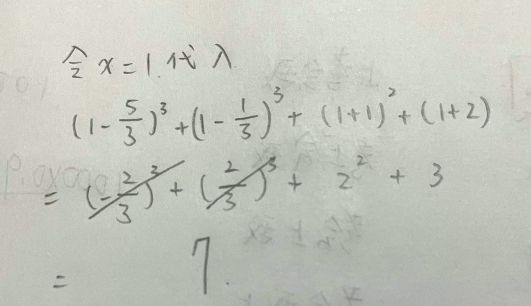 令 x=1 代入
(1-5/3)³+(1-1/3)³+(1+1)²+(1+2)
=(-2/3)³+(2/3)³+2²+3
=7.